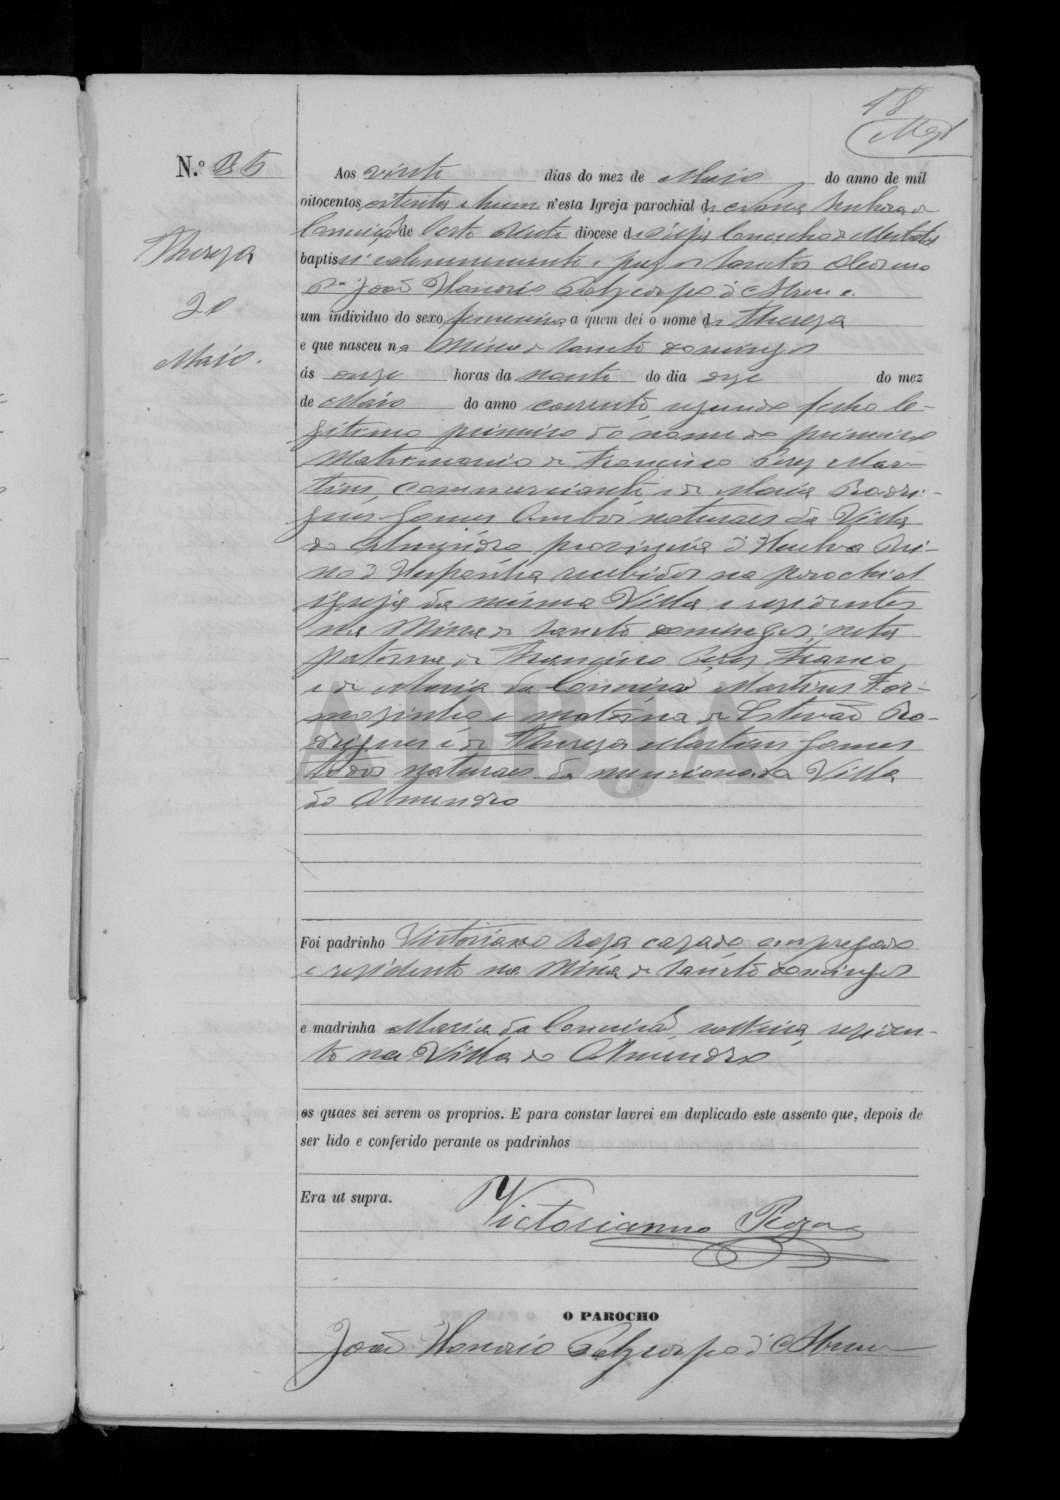 18
N.º 35
Thereza
20
Maio.
Aos vinte dias do mez de Maio do anno de mil
oitocentos oitenta e hum n'esta Igreja parochial de Nossa Senhora da
Conceição de Corte do Pinto diocese de Beja Concelho de Mertola
baptisei solemnemente e puz os Sanctos Oleos
João Honorio Polycarpo d'Abreu e
um individuo do sexo femenino a quem dei o nome de Thereza
e que nasceu na Mina de Sancto Domingos
ás onze horas da noute do dia onze do mez
de Maio do anno corrente, segundo filho le-
gitimo primeiro do nome do primeiro
Matrimonio de Francisco Martins, commerciante e de Maria Rodri-
gues Gomes Ambos naturaes da Villa
do Almendro provincia d'Huelva Rei-
no d'Hespanha recebidos na parochial
igreja da mesma Villa, e residentes
na Mina de Sancto Domingos; neta
paterna de Francisco Franco,
e de Maria da Conceição Martins
e materna de Estevão Ro-
drigues e de Thereza Martins Gomes
todos naturaes da mencionada Villa
do Almendro
Foi padrinho Victorianno Roza cazado, empregado
e rezidente na Mina de Sancto Domingos
e madrinha Maria da Conceição, solteira, reziden-
te na Villa do Almendro
os quaes sei serem os proprios. E para constar lavrei em duplicado este assento que, depois de
ser lido e conferido perante os padrinhos
Era ut supra.
Victorianno Roza
O PAROCHO
João Honorio Polycarpo d'Abreu
ADBJA